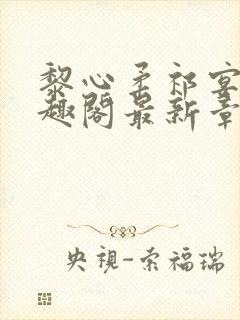 黎心柔祁宴
趣阁最新章
央视-索福瑞